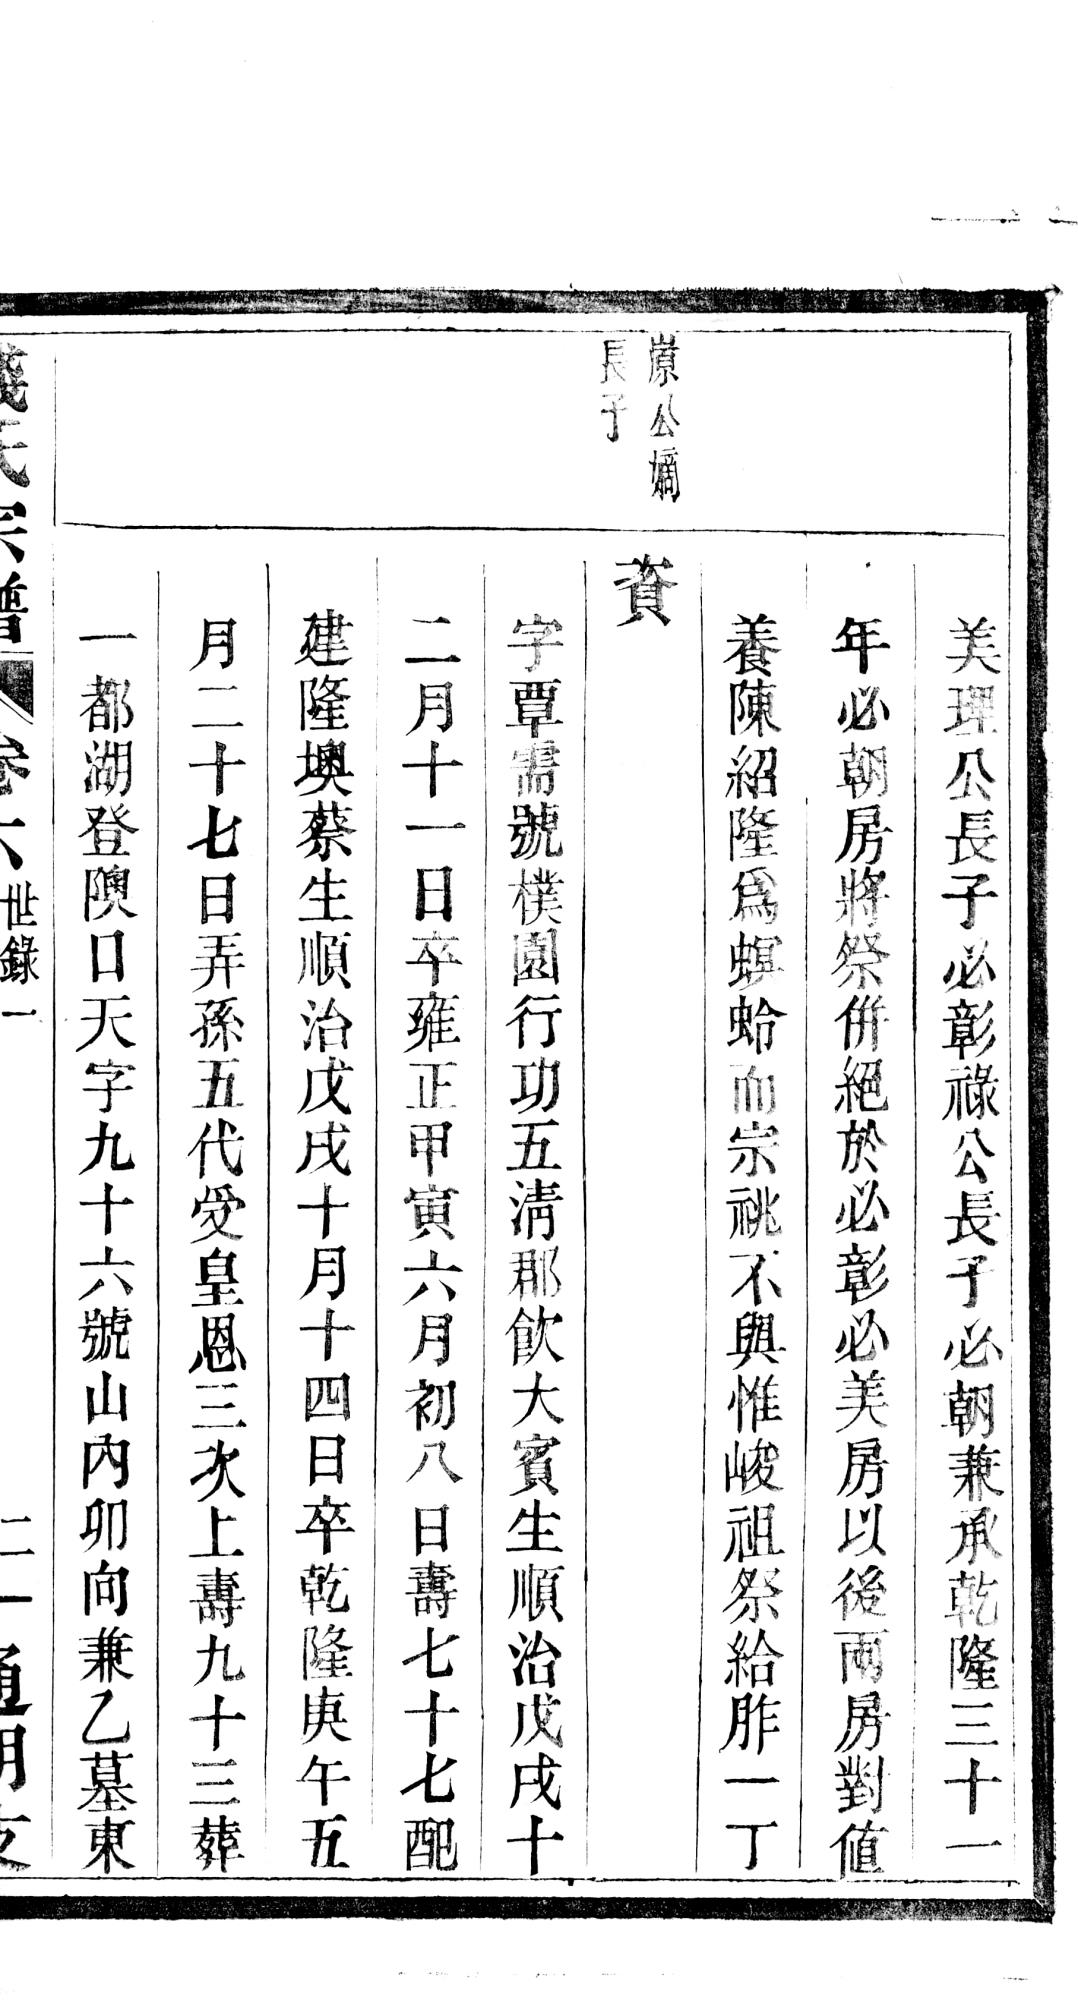 美理公長子必彰祿公長子必朝兼承乾隆三十一
年必朝房將祭併絕於必彰必美房以後兩房對值
養陳紹隆爲螟蛉而宗祧不與惟峻祖祭給胙一丁
㟲公嫡
長子
資
字覃需號樸園行功五淸郡飮大賓生順治戊戌十
二月十一日卒雍正甲寅六月初八日壽七十七配
建隆墺蔡生順治戊戌十月十四日卒乾隆庚午五
月二十七日弄孫五代受皇恩三次上壽九十三葬
一都湖登隩口天字九十六號山內卯向兼乙墓東
錢氏宗譜 卷六 世錄一 二一 通明支